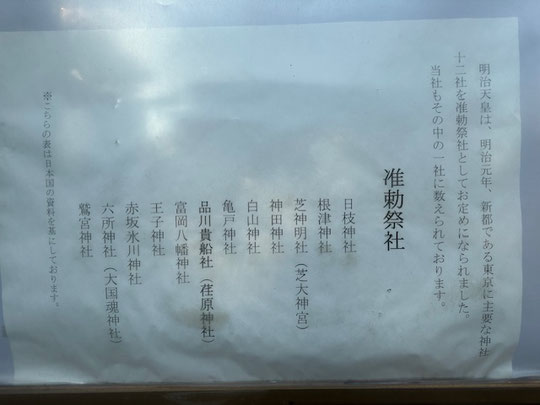 明治天皇は、明治元年、新都である東京に主要な神社
十二社を准勅祭社としてお定めになられました。
当社もその中の一社に数えられております。
准勅祭社
日枝神社
根津神社
芝神明社（芝大神宮）
神田神社
白山神社
亀戸神社
品川貴船社（荏原神社）
富岡八幡神社
王子神社
赤坂氷川神社
六所神社（大国魂神社）
鷲宮神社
※こちらの表は日本国の資料を基にしております。